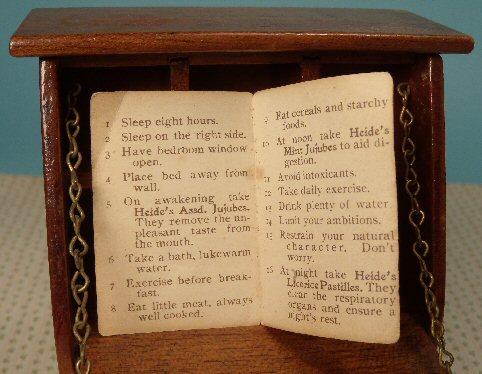 1 Sleep eight hours.
2 Sleep on the right side.
3 Have bedroom window
open.
4 Place bed away from
wall.
5 On awakening take
Heide's Assd. Jujubes.
They remove the un-
pleasant taste from
the mouth.
6 Take a bath, lukewarm
water.
7 Exercise before break-
fast.
8 Eat little meat, always
well cooked.
9 Eat cereals and starchy
foods.
10 At noon take Heide's
Mint Jujubes to aid di-
gestion.
11 Avoid intoxicants.
12 Take daily exercise.
13 Drink plenty of water.
14 Limit your ambitions.
15 Restrain your natural
character. Don't
worry.
16 At night take Heide's
Licorice Pastilles. They
clear the respiratory
organs and ensure a
night's rest.